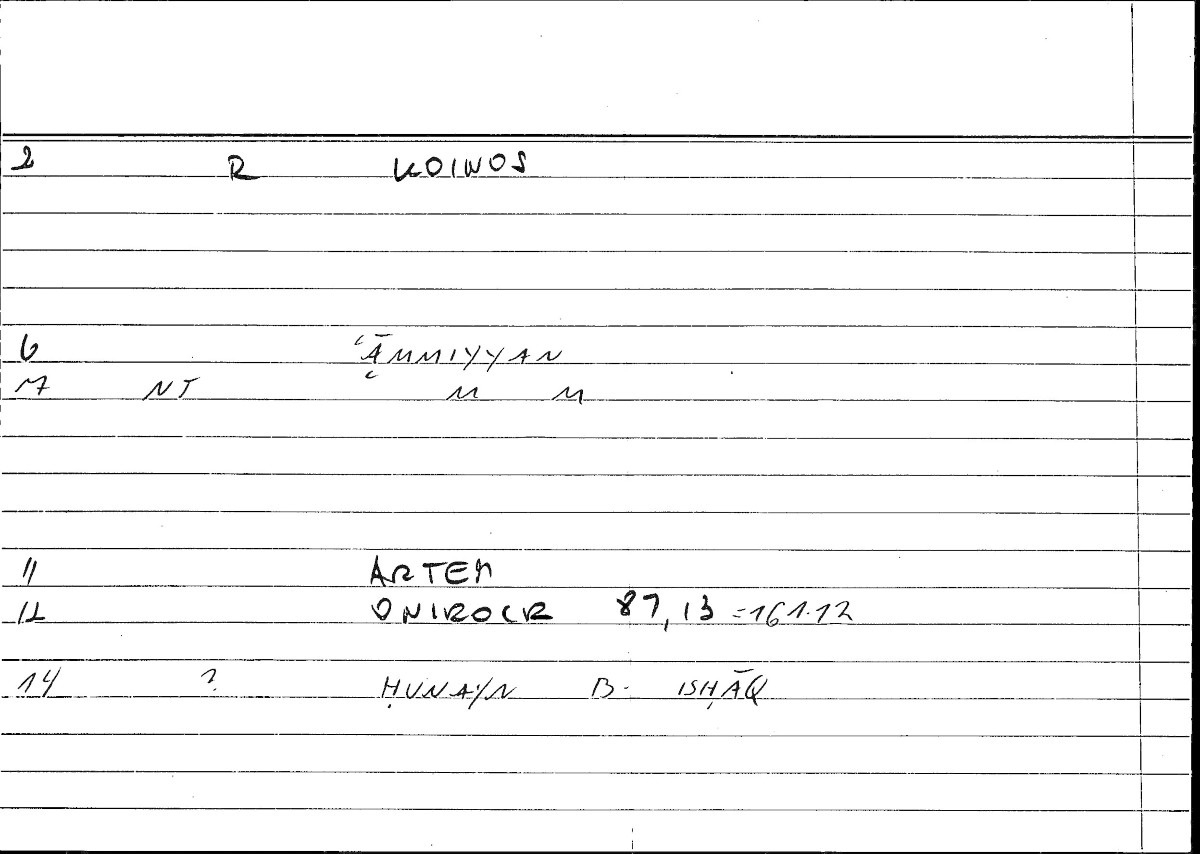 2 R KOINOS
6 ʿĀMMIYYAN
M NT M M
11 ARTEM
12 ONIROCR 87,13 =161.12
14 ? ḤUNAYN B. ISḤĀQ